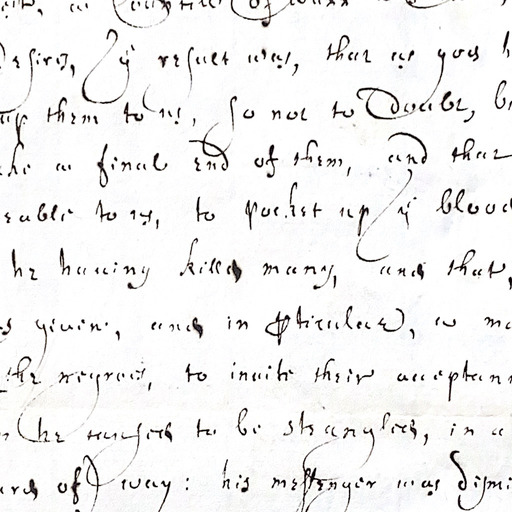 a Councill of warr
desires, yͤ result was, that as you h
up them to us, so not to Doubt, b
the a final End of them, and that
to us, to pocket up yͤ blood
he having killed many, and that,
given, and in ꝑticular, w
the negroes, to invite their acceptan
he caused to be strangled, in a
of way: his messenger was dismi